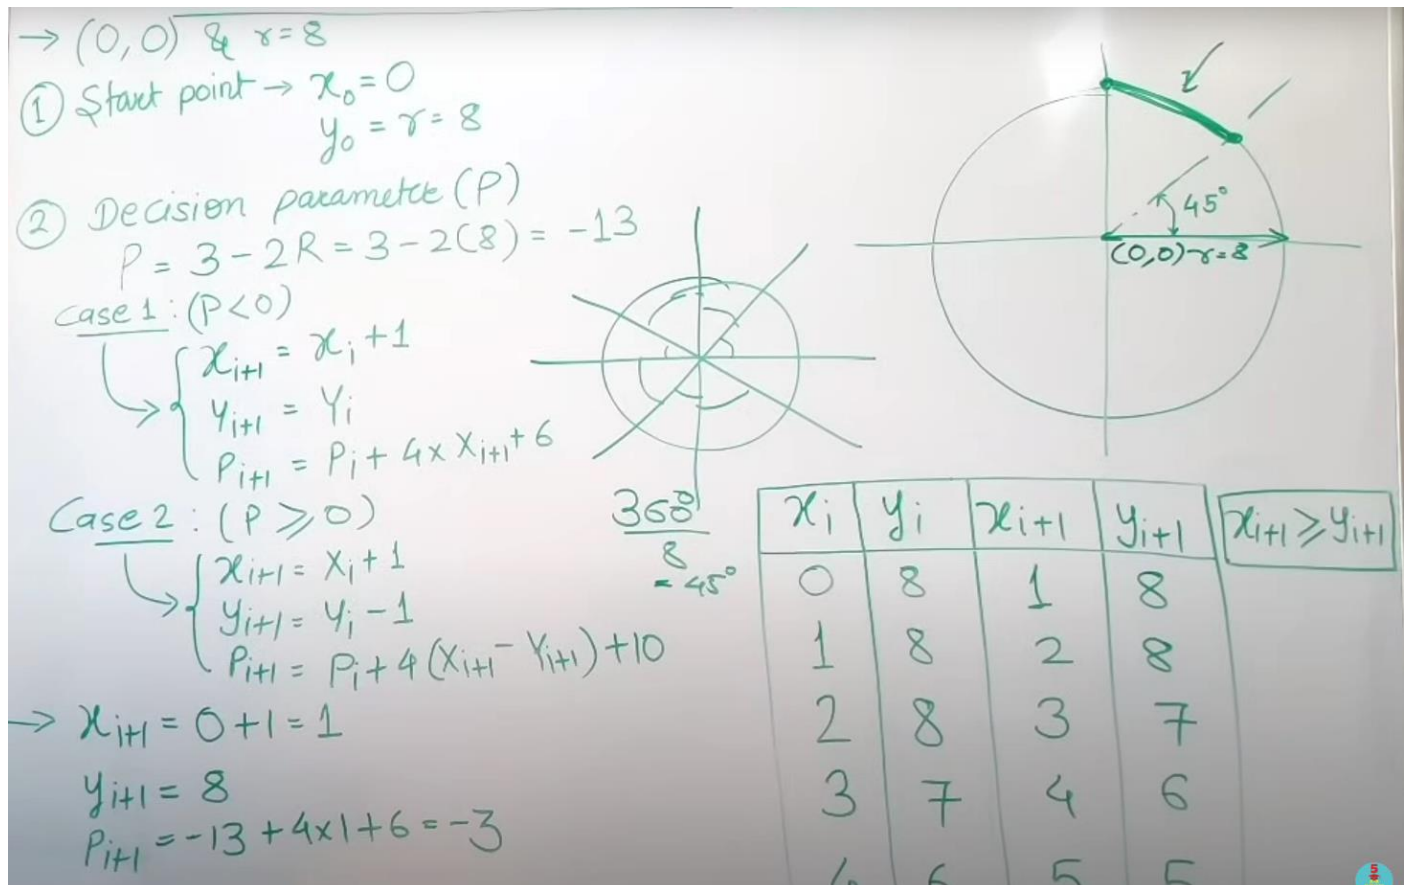 → (0,0) & r=8
① Start point → x₀=0
y₀ = r = 8
② Decision parameter (P)
P = 3 - 2R = 3-2(8) = -13
Case 1 : (P<0)
xᵢ₊₁ = xᵢ+1
Yᵢ₊₁ = Yᵢ
Pᵢ₊₁ = Pᵢ + 4 x Xᵢ₊₁ + 6
Case 2 : (P ≥ 0)
xᵢ₊₁ = Xᵢ + 1
yᵢ₊₁ = yᵢ - 1
Pᵢ₊₁ = Pᵢ + 4 (Xᵢ₊₁ - Yᵢ₊₁) + 10
→ xᵢ₊₁ = 0+1 = 1
yᵢ₊₁ = 8
Pᵢ₊₁ = -13 + 4x1+6 = -3
45°
(0,0) r=8
360°
8
= 45°
xᵢ yᵢ xᵢ₊₁ yᵢ₊₁ xᵢ₊₁ ≥ yᵢ₊₁
0 8 1 8
1 8 2 8
2 8 3 7
3 7 4 6
4 6 5 5
5